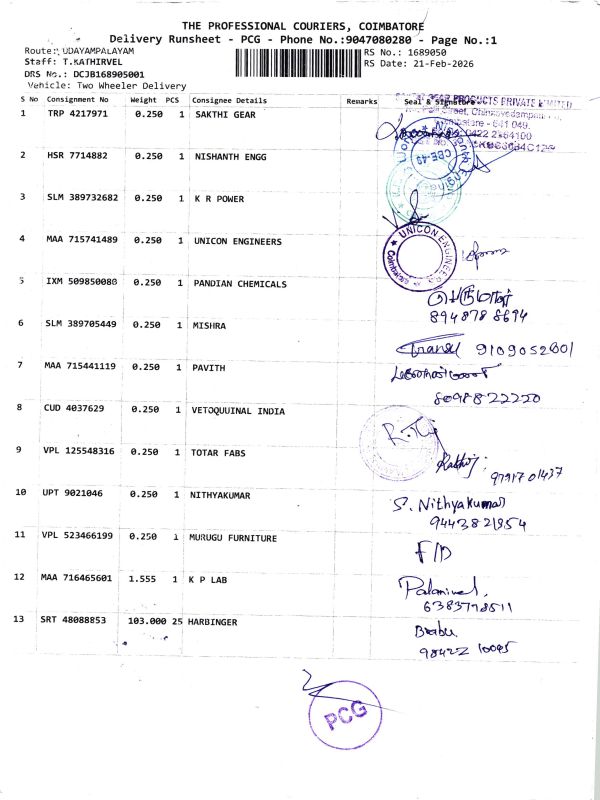 THE PROFESSIONAL COURIERS, COIMBATORE
Delivery Runsheet - PCG - Phone No.:9047080280 - Page No.:1
Route: UDAYAMPALAYAM
RS No.: 1689050
Staff: T.KATHIRVEL
RS Date: 21-Feb-2026
DRS No.: DCJB168905001
Vehicle: Two Wheeler Delivery
S No Consignment No Weight PCS Consignee Details Remarks Seal & Signature
PRODUCTS PRIVATE LIMITED
1 TRP 4217971 0.250 1 SAKTHI GEAR
Street, Chinnavedampatti
641 049.
2 HSR 7714882 0.250 1 NISHANTH ENGG
CBE-49
3 SLM 389732682 0.250 1 K R POWER
4 MAA 715741489 0.250 1 UNICON ENGINEERS
UNICON ENGINEERS
Coimbatore
5 IXM 509850080 0.250 1 PANDIAN CHEMICALS
894878 8694
6 SLM 389705449 0.250 1 MISHRA
9109052001
7 MAA 715441119 0.250 1 PAVITH
8098822220
8 CUD 4037629 0.250 1 VETOQUUINAL INDIA
9 VPL 125548316 0.250 1 TOTAR FABS
9791701437
10 UPT 9021046 0.250 1 NITHYAKUMAR
S. Nithyakumar
9443821954
11 VPL 523466199 0.250 1 MURUGU FURNITURE
F/D
12 MAA 716465601 1.555 1 K P LAB
Palanivel.
6383798511
13 SRT 48088853 103.000 25 HARBINGER
Babu
98422 10095
PCG